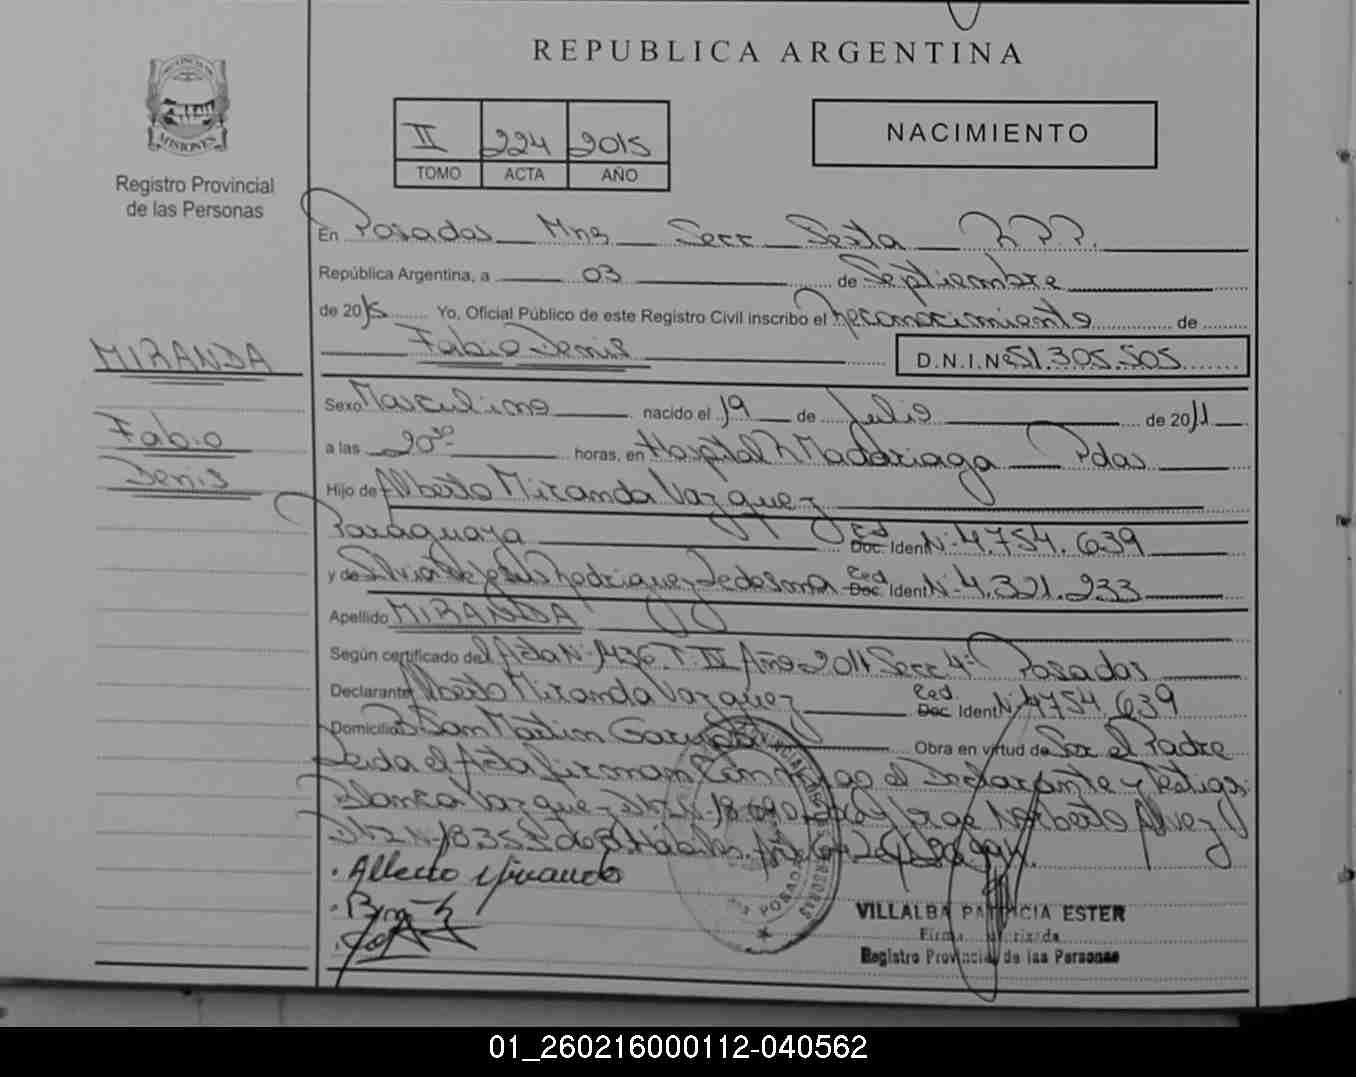 REPUBLICA ARGENTINA
PROVINCIA DE
MISIONES
Registro Provincial
de las Personas
II 224 2015
TOMO ACTA AÑO
NACIMIENTO
En Posadas Mns Secc Sexta R.P.P.
República Argentina, a 03 de Septiembre
de 2015 Yo, Oficial Público de este Registro Civil inscribo el Reconocimiento de
Fabio Denis D.N.I.Nº 51.305.505
MIRANDA
Fabio
Denis
Sexo Masculino nacido el 19 de Julio de 2011
a las 20 30 horas, en Hospital R Madariaga Pdas
Hijo de Alberto Miranda Vazquez
Paraguaya Ced Doc. Ident Nº 4.754.639
y de Silvia de Jesus Rodriguez Ledesma Ced Doc Ident Nº 4.321.233
Apellido MIRANDA
Según certificado del Acta Nº 1436 T. III Año 2011 Secc 4ª Posadas
Declarante Alberto Miranda Vazquez Ced. Doc Ident Nº 4754.639
Domicilio Bº San Martin Garupá Obra en virtud de Ser el Padre
Leida el Acta firman Conmigo el Declarante y Testigos:
Blanca Vazquez Jorge Norberto Alvez
Alberto Miranda
POSADAS
VILLALBA PATRICIA ESTER
Firma Autorizada
Registro Provincial de las Personas
01_260216000112-040562